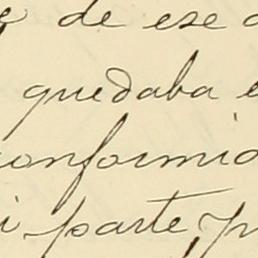 de ese
quedaba
conformid
i parte, p